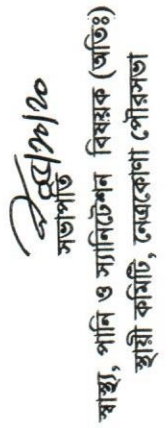 সভাপতি
স্বাস্থ্য, পানি ও স্যানিটেশন বিষয়ক (অতিঃ)
স্থায়ী কমিটি, নেত্রকোণা পৌরসভা